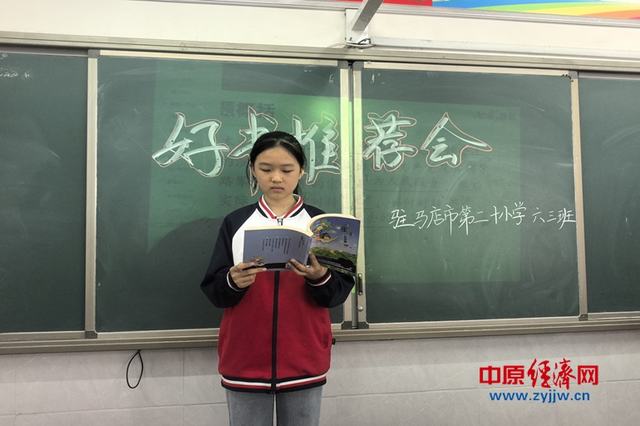 好书推荐会
驻马店市第二十小学六三班
中原经济网
www.zyjjw.cn